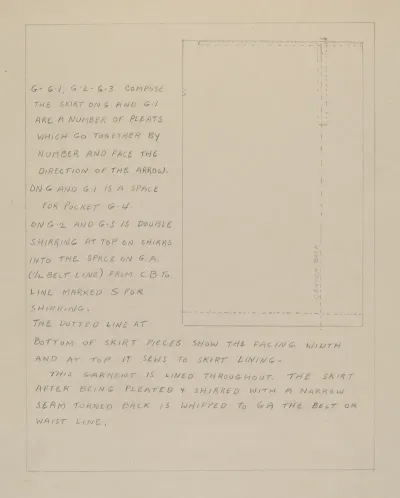 G-G-1, G-2-G-3 COMPOSE
THE SKIRT ON G AND G-1
ARE A NUMBER OF PLEATS
WHICH GO TOGETHER BY
NUMBER AND FACE THE
DIRECTION OF THE ARROW.
ON G AND G-1 IS A SPACE
FOR POCKET G-4
ON G-2 AND G-3 IS DOUBLE
SHIRRING AT TOP ON SHIRRS
INTO THE SPACE ON G.A.
(1/2 BELT LINE) FROM C B TO
LINE MARKED S FOR
SHIRRING.
THE DOTTED LINE AT
BOTTOM OF SKIRT PIECES SHOW THE FACING WIDTH
AND AT TOP IT SEWS TO SKIRT LINING.
THIS GARMENT IS LINED THROUGHOUT. THE SKIRT
AFTER BEING PLEATED & SHIRRED WITH A NARROW
SEAM TURNED BACK IS WHIPPED TO GA THE BELT OR
WAIST LINE.
CENTER BACK